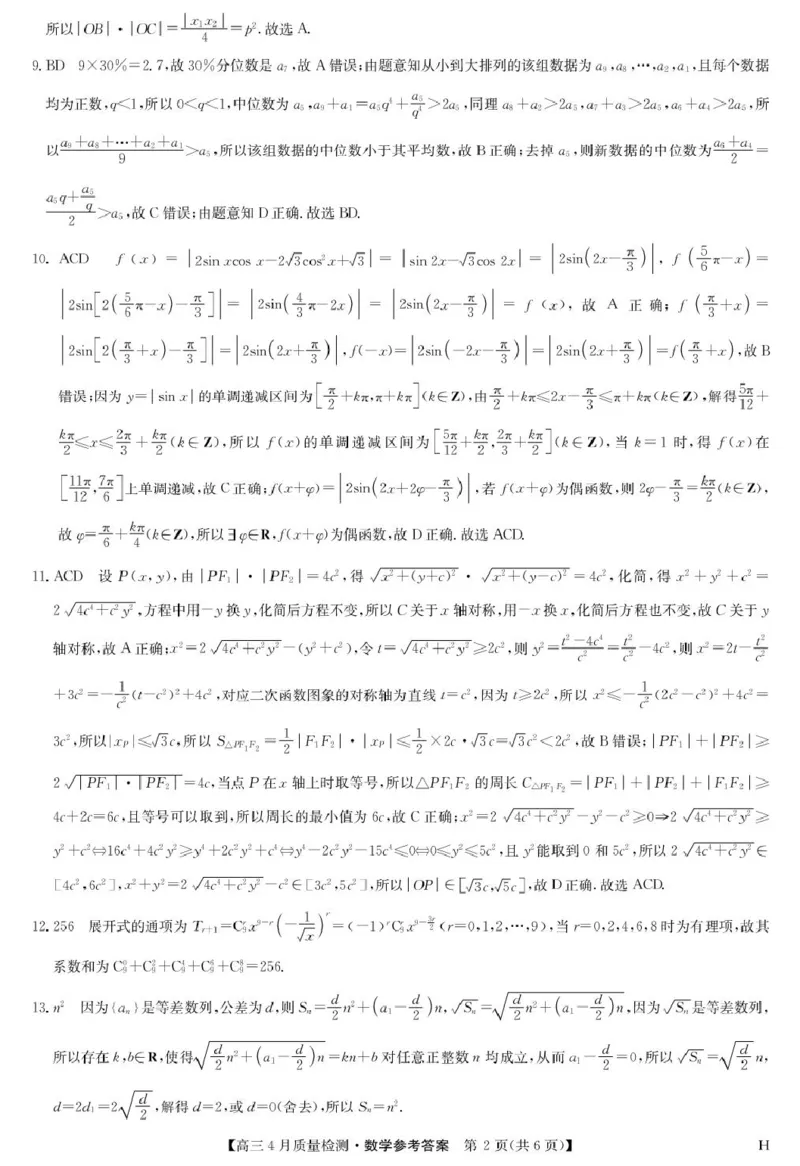 所以|OB|·|OC|=|x₁x₂|/4=p².故选A.
9.BD 9×30%=2.7,故30%分位数是a₇,故A错误;由题意知从小到大排列的该组数据为a₉,a₈,…,a₂,a₁,且每个数据
均为正数,q<1,所以0<q<1,中位数为a₅,a₉+a₁=a₅q⁴+a₅/q⁴>2a₅,同理a₈+a₂>2a₅,a₇+a₃>2a₅,a₆+a₄>2a₅,所
以(a₉+a₈+…+a₂+a₁)/9>a₅,所以该组数据的中位数小于其平均数,故B正确;去掉a₅,则新数据的中位数为(a₆+a₄)/2=
(a₅q+a₅/q)/2>a₅,故C错误;由题意知D正确.故选BD.
10.ACD f(x)=|2sin xcos x-2√3cos²x+√3|=|sin 2x-√3cos 2x|=|2sin(2x-π/3)|,f(5/6π-x)=
|2sin[2(5/6π-x)-π/3]|=|2sin(4/3π-2x)|=|2sin(2x-π/3)|=f(x),故A正确;f(π/3+x)=
|2sin[2(π/3+x)-π/3]|=|2sin(2x+π/3)|,f(-x)=|2sin(-2x-π/3)|=|2sin(2x+π/3)|=f(π/3+x),故B
错误;因为y=|sin x|的单调递减区间为[π/2+kπ,π+kπ](k∈Z),由π/2+kπ≤2x-π/3≤π+kπ(k∈Z),解得5π/12+
kπ/2≤x≤2π/3+kπ/2(k∈Z),所以f(x)的单调递减区间为[5π/12+kπ/2,2π/3+kπ/2](k∈Z),当k=1时,得f(x)在
[11π/12,7π/6]上单调递减,故C正确;f(x+φ)=|2sin(2x+2φ-π/3)|,若f(x+φ)为偶函数,则2φ-π/3=kπ/2(k∈Z),
故φ=π/6+kπ/4(k∈Z),所以∃φ∈R,f(x+φ)为偶函数,故D正确.故选ACD.
11.ACD 设P(x,y),由|PF₁|·|PF₂|=4c²,得√(x²+(y+c)²)·√(x²+(y-c)²)=4c²,化简,得x²+y²+c²=
2√(4c⁴+c²y²),方程中用-y换y,化简后方程不变,所以C关于x轴对称,用-x换x,化简后方程也不变,故C关于y
轴对称,故A正确;x²=2√(4c⁴+c²y²)-(y²+c²),令t=√(4c⁴+c²y²)≥2c²,则y²=(t²-4c⁴)/c²=t²/c²-4c²,则x²=2t-t²/c²
+3c²=-1/c²(t-c²)²+4c²,对应二次函数图象的对称轴为直线t=c²,因为t≥2c²,所以x²≤-1/c²(2c²-c²)²+4c²=
3c²,所以|x_P|≤√3c,所以S△PF₁F₂=1/2|F₁F₂|·|x_P|≤1/2×2c·√3c=√3c²<2c²,故B错误;|PF₁|+|PF₂|≥
2√(|PF₁|·|PF₂|)=4c,当点P在x轴上时取等号,所以△PF₁F₂的周长C△PF₁F₂=|PF₁|+|PF₂|+|F₁F₂|≥
4c+2c=6c,且等号可以取到,所以周长的最小值为6c,故C正确;x²=2√(4c⁴+c²y²)-y²-c²≥0⇒2√(4c⁴+c²y²)≥
y²+c²⇔16c⁴+4c²y²≥y⁴+2c²y²+c⁴⇔y⁴-2c²y²-15c⁴≤0⇔0≤y²≤5c²,且y²能取到0和5c²,所以2√(4c⁴+c²y²)∈
[4c²,6c²],x²+y²=2√(4c⁴+c²y²)-c²∈[3c²,5c²],所以|OP|∈[√3c,√5c],故D正确.故选ACD.
12.256 展开式的通项为Tᵣ₊₁=C₉ʳx⁹⁻ʳ(-1/√x)ʳ=(-1)ʳC₉ʳx^(9-3r/2)(r=0,1,2,…,9),当r=0,2,4,6,8时为有理项,故其
系数和为C₉⁰+C₉²+C₉⁴+C₉⁶+C₉⁸=256.
13.n² 因为{aₙ}是等差数列,公差为d,则Sₙ=d/2n²+(a₁-d/2)n,√Sₙ=√(d/2n²+(a₁-d/2)n),因为√Sₙ是等差数列,
所以存在k,b∈R,使得√(d/2n²+(a₁-d/2)n)=kn+b对任意正整数n均成立,从而a₁-d/2=0,所以√Sₙ=√(d/2)n,
d=2d₁=2√(d/2),解得d=2,或d=0(舍去),所以Sₙ=n².
【高三4月质量检测·数学参考答案 第2页(共6页)】 H